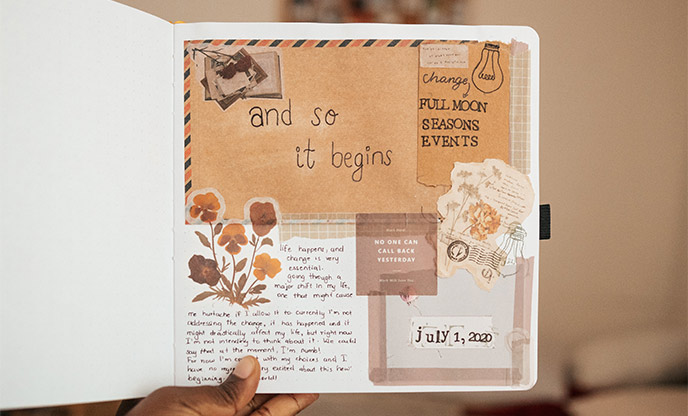 and so
it begins
change,
FULL MOON
SEASONS
EVENTS
NO ONE CAN
CALL BACK
YESTERDAY
life happens, and
change is very
essential.
going through a
major shift in my life,
one that might cause
me heartache if I allow it to currently I'm not
addressing the change, it has happened and it
might drastically affect my life, but right now
I'm not intending to think about it. We could
say that at the moment, I'm numb!
For now I'm with my choices and I
have no very excited about this new
beginning
july 1, 2020